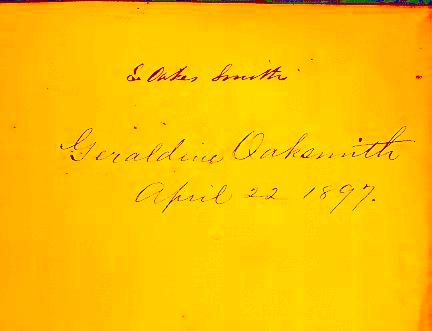 E Oakes Smith
Geraldine Oaksmith
April 22 1897.